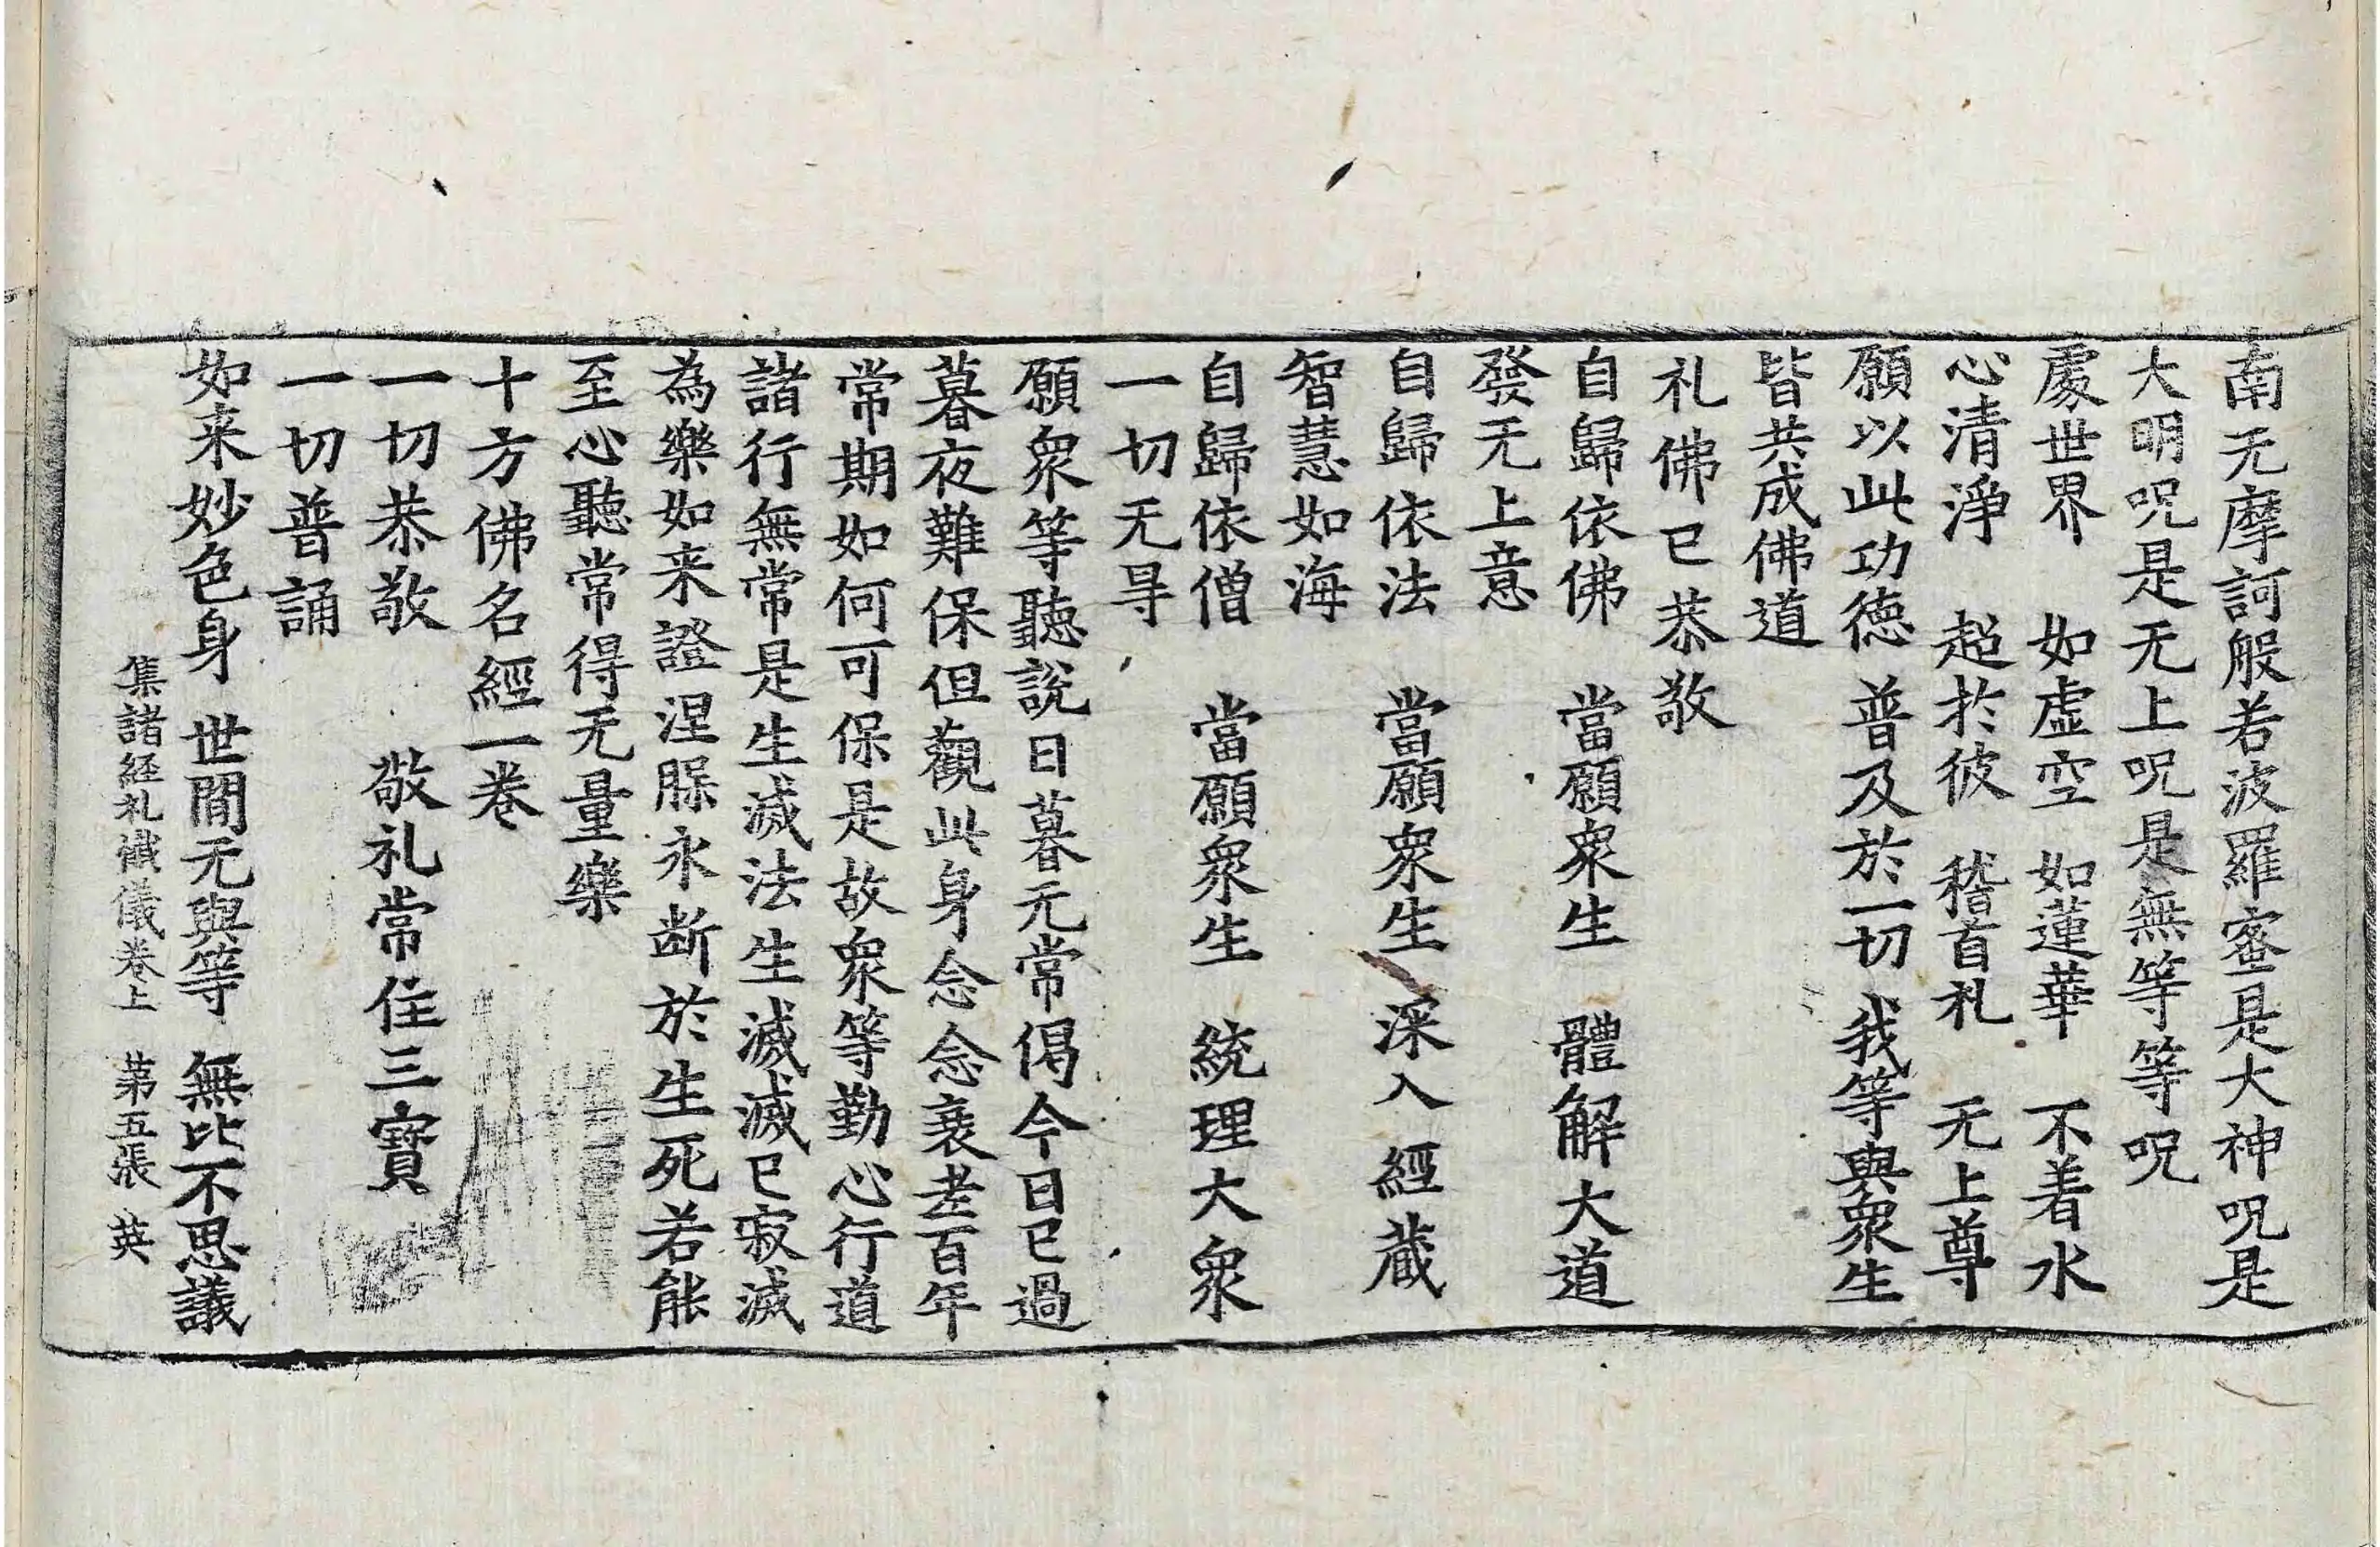 南无摩訶般若波羅蜜是大神呪是
大明呪是无上呪是無等等呪
處世界　如虛空　如蓮華　不着水
心清淨　超扵彼　稽首礼　无上尊
願以此功德　普及於一切　我等與衆生
皆共成佛道
礼佛已恭敬
自歸依佛　當願衆生　體解大道
發无上意
自歸依法　當願衆生　深入經蔵
智慧如海
自歸依僧　當願衆生　統理大衆
一切无㝵
願衆等聽說日暮无常偈今日已過
暮夜難保但觀此身念念衰老百年
常期如何可保是故衆等勤心行道
諸行無常是生滅法生滅滅已寂滅
為樂如来證涅脲永断於生死若能
至心聽常得无量樂
十方佛名經一卷
一切恭敬　敬礼常住三寳
一切普誦
如来妙色身　世間无與等　無比不思議
集諸経礼懺儀卷上　第五張　英